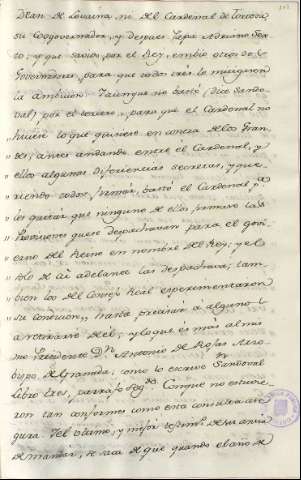 Dean de Lovaina, ni del Cardenal de Tortosa
su Cogovernador, y despues Papa Adriano Sex-
to; y que savido por el Rey, embio otros dos
Governadores, para que todos tres lo
la ambicion. Y aunque no bastó (dice Sando-
val) por el tercero, para que el Cardenal no
hiciese lo que quisiere en contra de los Gran-
des, antes andando entre el Cardenal, y
ellos algunas diferencias secretas, y que-
riendo todos firmar, bastó el Cardenal pa
les quitar que ninguno de ellos firmase las
Provisiones que se despachavan para el govi-
erno del Reino en nombre del Rey: y el
solo de ai adelante las despachava; tam-
bien los del Consejo Real experimentaron
su condicion, hasta precisar á alguno á
del, y lo que es más al mis
mo Presidente Dn Antonio de Rojas Arzo-
bispo de Granada; como lo escrive Sandoval
libro tres, parrafo Conque no estuvie-
ron tan conformes como esta considera
gura. Y el ultimo, y mejor testim.o de su ansia
de mandar, se saca de que quando el año de